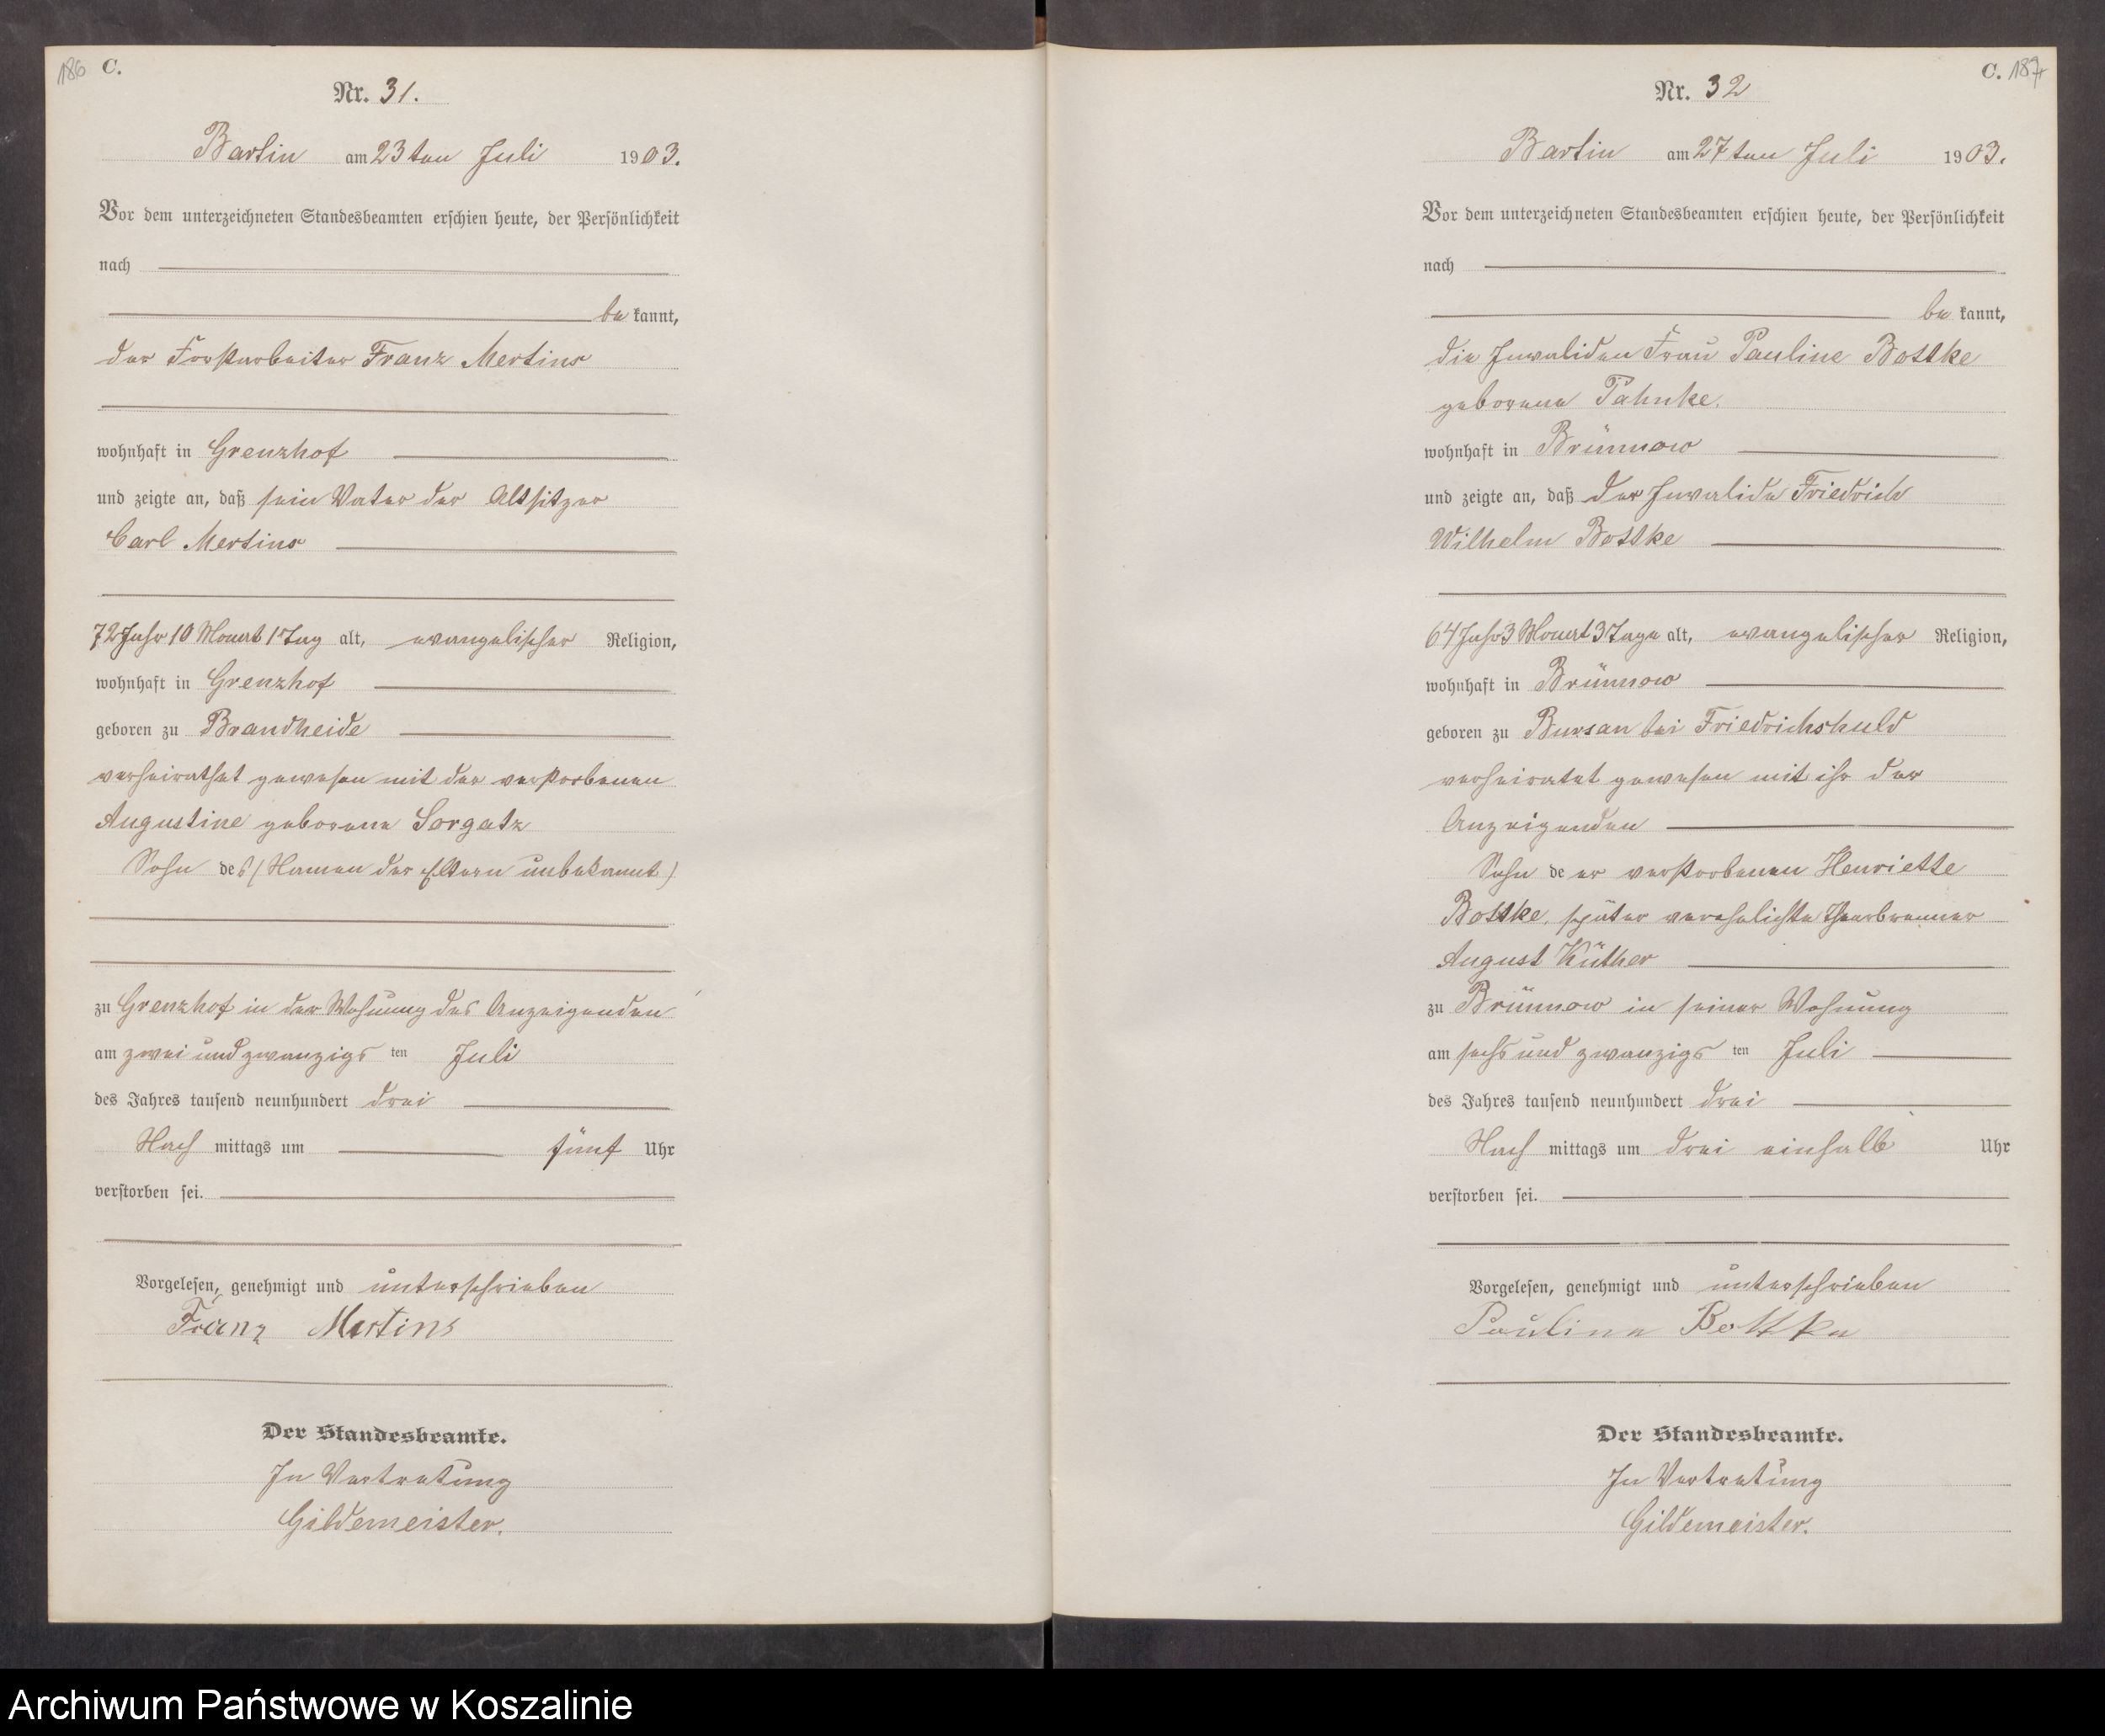 186 C.
Nr. 31.
Bartin am 23ten Juli 1903.
Vor dem unterzeichneten Standesbeamten erschien heute, der Persönlichkeit
nach
be kannt,
der Forstarbeiter Franz Mertins
wohnhaft in Grenzhof
und zeigte an, daß sein Vater der Altsitzer
Carl Mertins
72 Jahr 10 Monat 1 Tag alt, evangelischer Religion,
wohnhaft in Grenzhof
geboren zu Brandheide
verheirathet gewesen mit der verstorbenen
Augustine geborene Sorgatz
Sohn des (Namen der Eltern unbekannt)
zu Grenzhof in der Wohnung des Anzeigenden
am zwei und zwanzigs ten Juli
des Jahres tausend neunhundert drei
Nach mittags um fünf Uhr
verstorben sei.
Vorgelesen, genehmigt und unterschrieben
Franz Mertins
Der Standesbeamte.
In Vertretung
Gildemeister.
C. 187
Nr. 32
Bartin am 27ten Juli 1903.
Vor dem unterzeichneten Standesbeamten erschien heute, der Persönlichkeit
nach
be kannt,
die Invaliden Frau Pauline Bottke
geborene Pahnke.
wohnhaft in Brünnow
und zeigte an, daß der Invalide Friedrich
Wilhelm Bottke
64 Jahr 3 Monat 3 Tage alt, evangelischer Religion,
wohnhaft in Brünnow
geboren zu Bursan bei Friedrichshuld
verheiratet gewesen mit ihr der
Anzeigenden
Sohn de er verstorbenen Henriette
Bottke, später verehelichte Theerbrenner
August Küther
zu Brünnow in seiner Wohnung
am sechs und zwanzigs ten Juli
des Jahres tausend neunhundert drei
Nach mittags um drei einhalb Uhr
verstorben sei.
Vorgelesen, genehmigt und unterschrieben
Pauline Bottke
Der Standesbeamte.
In Vertretung
Gildemeister.
Archiwum Państwowe w Koszalinie